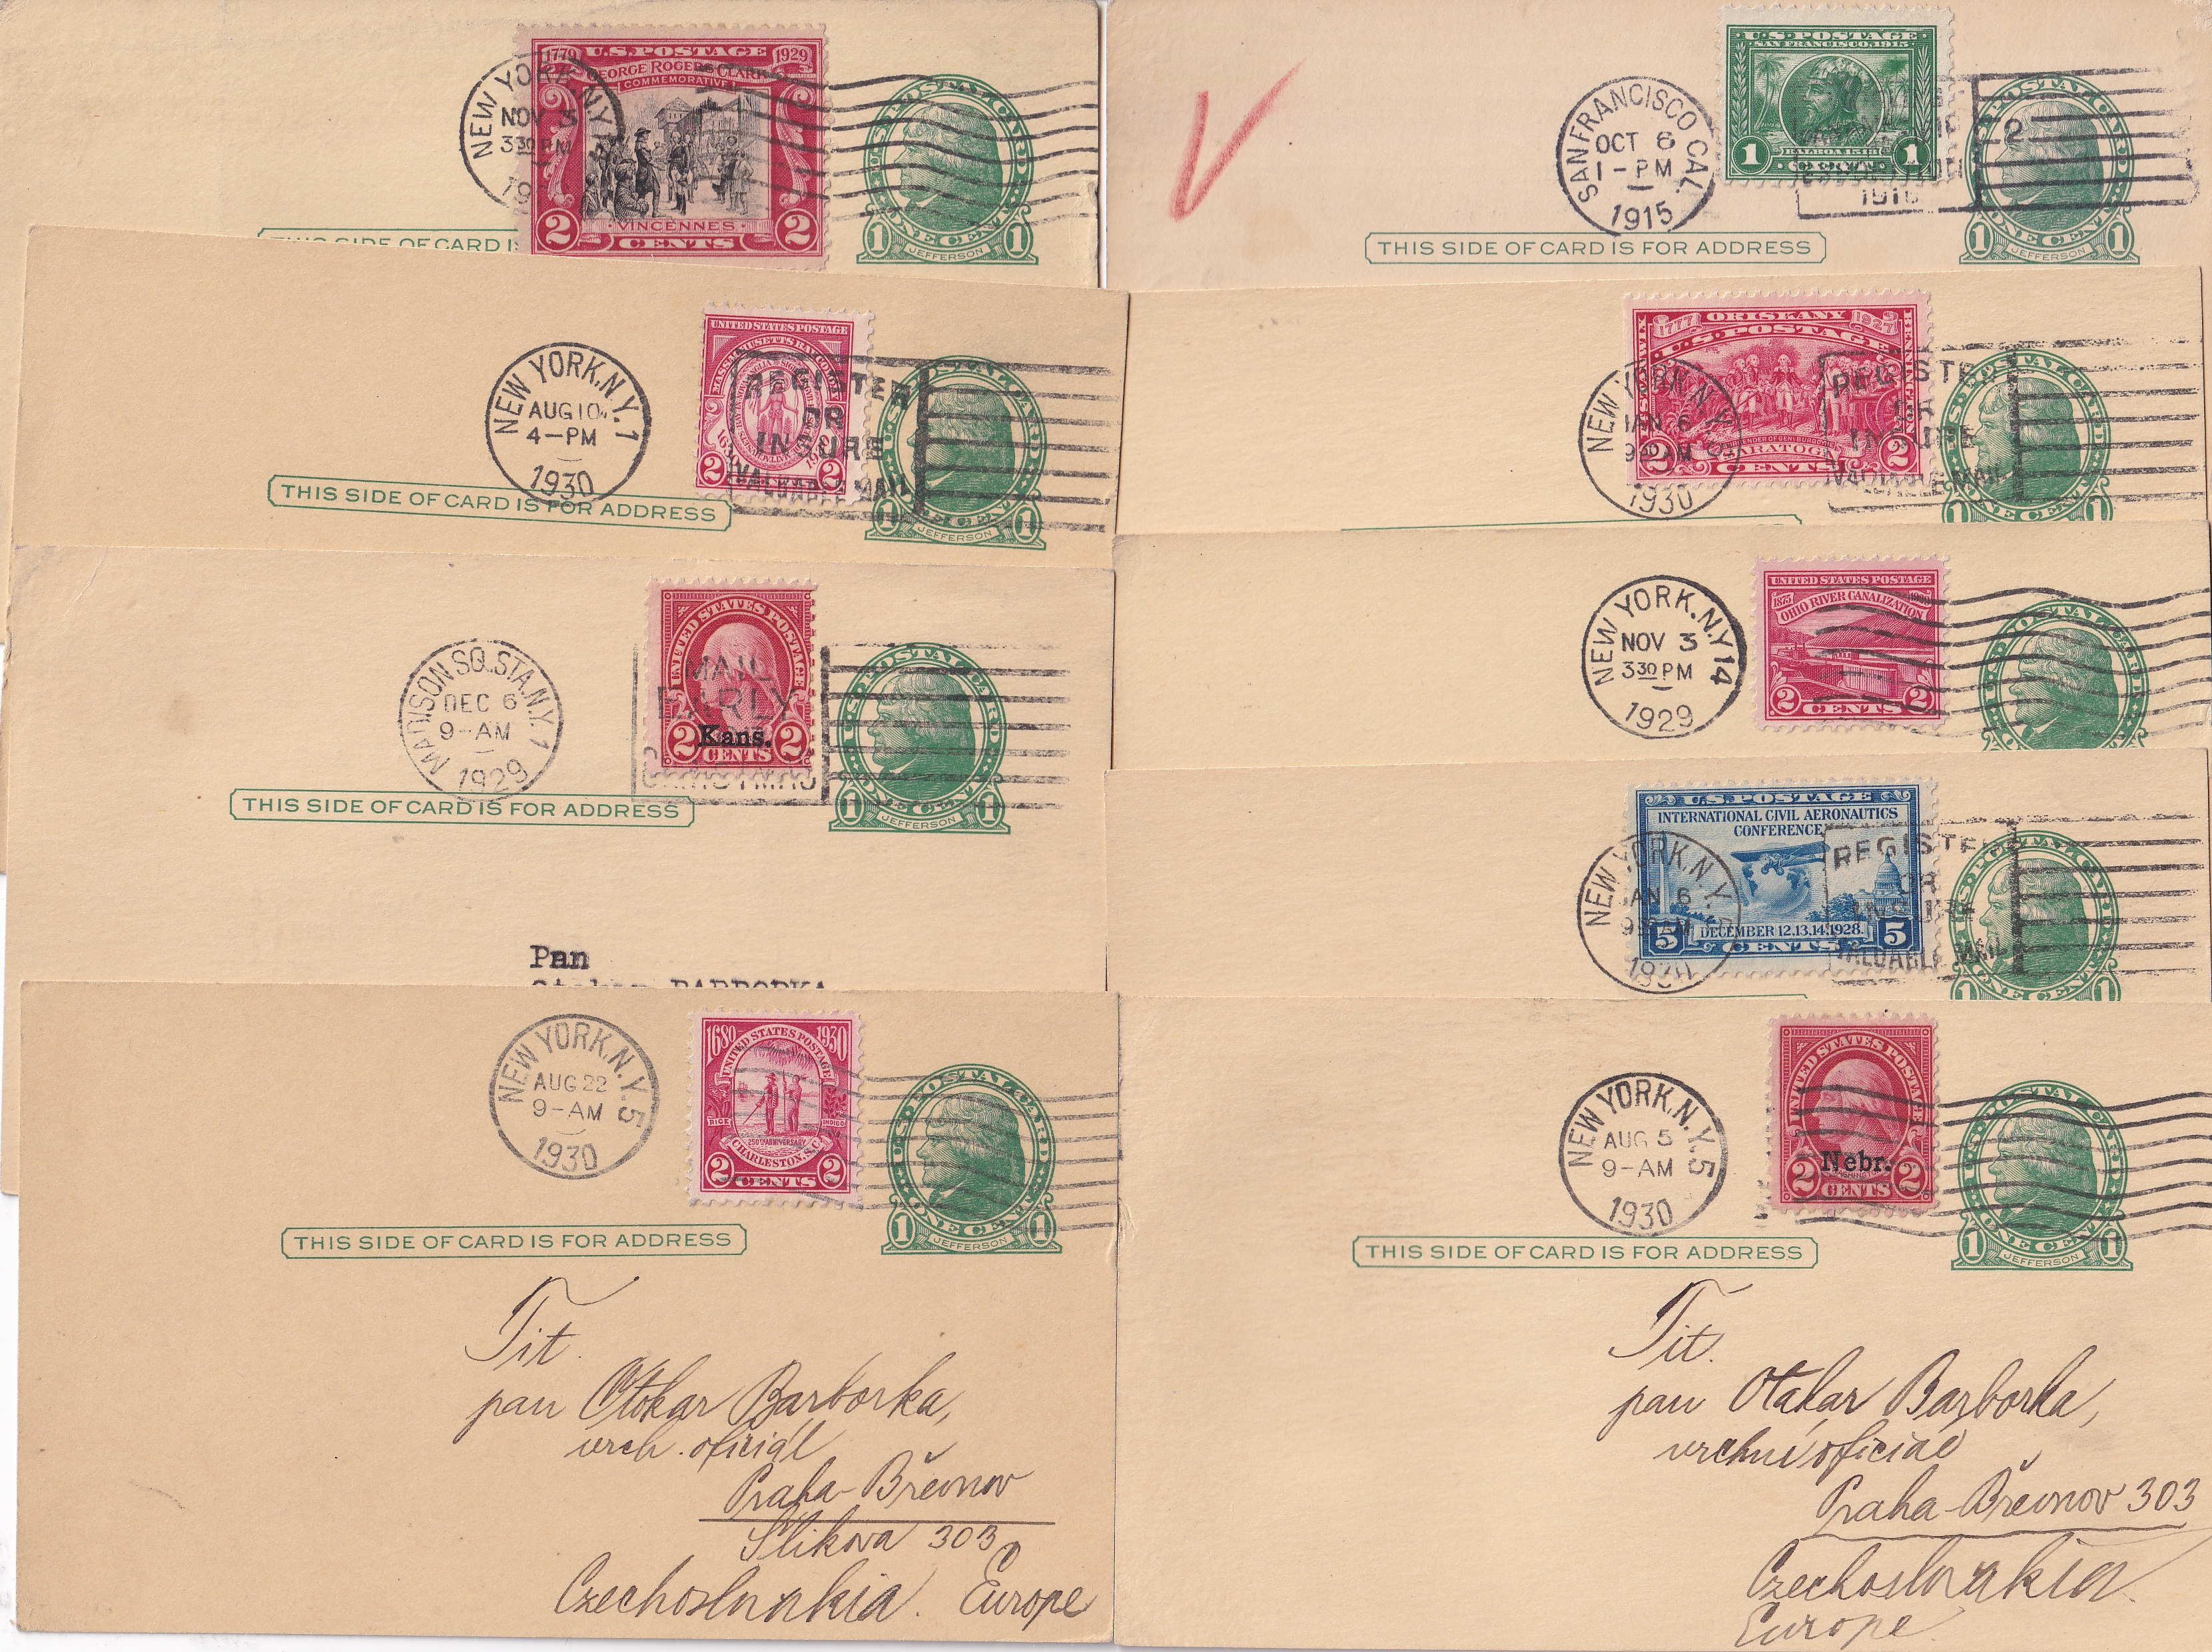 1779 U.S. POSTAGE 1929
GEORGE ROGERS CLARK
COMMEMORATIVE
VINCENNES
2 CENTS 2
NEW YORK, N.Y.
NOV 3
3 30 PM
1 ONE CENT 1
JEFFERSON
THIS SIDE OF CARD IS
U.S. POSTAGE
SAN FRANCISCO, 1915
BALBOA 1513
1 CENT 1
SAN FRANCISCO CAL.
OCT 6
1-PM
1915
THIS SIDE OF CARD IS FOR ADDRESS
1 ONE CENT 1
JEFFERSON
UNITED STATES POSTAGE
MASSACHUSETTS BAY COLONY
2 2
NEW YORK, N.Y. 1
AUG 10
4-PM
1930
REGISTER
OR
INSURE
VALUABLE MAIL
THIS SIDE OF CARD IS FOR ADDRESS
1 1
JEFFERSON
1777 ORISKANY 1927
U.S. POSTAGE
SARATOGA
2 CENTS 2
NEW YORK, N.Y.
JAN 6
9 AM
1930
REGISTER
OR
INSURE
VALUABLE MAIL
1 ONE CENT 1
UNITED STATES POSTAGE
Kans.
2 CENTS 2
MADISON SQ. STA. N.Y. 1
DEC 6
9-AM
1929
MAIL
EARLY
CHRISTMAS
U.S. POSTAL CARD
1 ONE CENT 1
JEFFERSON
THIS SIDE OF CARD IS FOR ADDRESS
Pan
UNITED STATES POSTAGE
1875 1929
OHIO RIVER CANALIZATION
2 CENTS 2
NEW YORK, N.Y. 14
NOV 3
3 30 PM
1929
U.S. POSTAL CARD
U.S. POSTAGE
INTERNATIONAL CIVIL AERONAUTICS
CONFERENCE
DECEMBER 12,13,14,1928.
5 CENTS 5
NEW YORK, N.Y.
JAN 6
9 AM
REGISTER
OR
INSURE
VALUABLE MAIL
1 ONE CENT 1
1680 UNITED STATES POSTAGE 1930
RICE INDIGO
250TH ANNIVERSARY
CHARLESTON, S.C.
2 CENTS 2
NEW YORK, N.Y. 5
AUG 22
9-AM
1930
U.S. POSTAL CARD
1 ONE CENT 1
JEFFERSON
THIS SIDE OF CARD IS FOR ADDRESS
Tit.
pan Otokar Barborka,
vrch. oficiál
Praha-Břevnov
Šlikova 303
Czechoslovakia. Europe
UNITED STATES POSTAGE
Nebr.
2 CENTS 2
NEW YORK, N.Y. 5
AUG 5
9-AM
1930
U.S. POSTAL CARD
1 ONE CENT 1
JEFFERSON
THIS SIDE OF CARD IS FOR ADDRESS
Tit.
pan Otakar Barborka,
vrchní oficiál
Praha-Břevnov 303
Czechoslovakia.
Europe